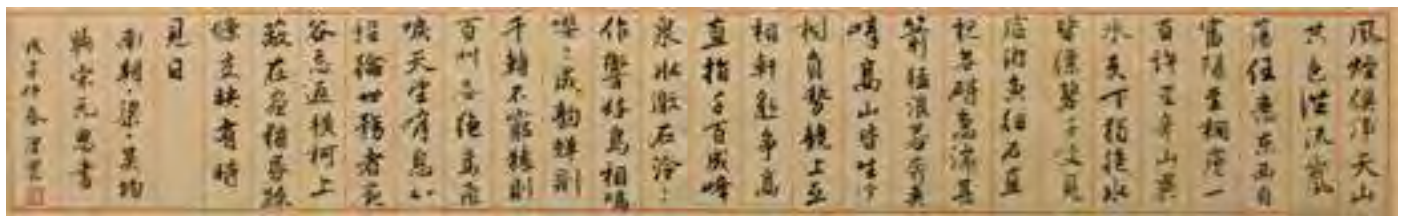 風煙俱淨天山
共色從流飄
蕩任意東西自
富陽至桐廬一
百許里奇山異
水天下獨絕水
皆縹碧千丈見
底游魚細石直
視無礙急湍甚
箭猛浪若奔夾
岸高山皆生寒
樹負勢競上互
相軒邈爭高
直指千百成峰
泉水激石泠々
作響好鳥相鳴
嚶々成韻蟬則
千轉不窮猿則
百叫無絕鳶飛
唳天望峰息心
經綸世務者窺
谷忘返橫柯上
蔽在晝猶昏疏
條交映有時
見日
南朝·梁·吳均
與宋元思書
戊子仲春